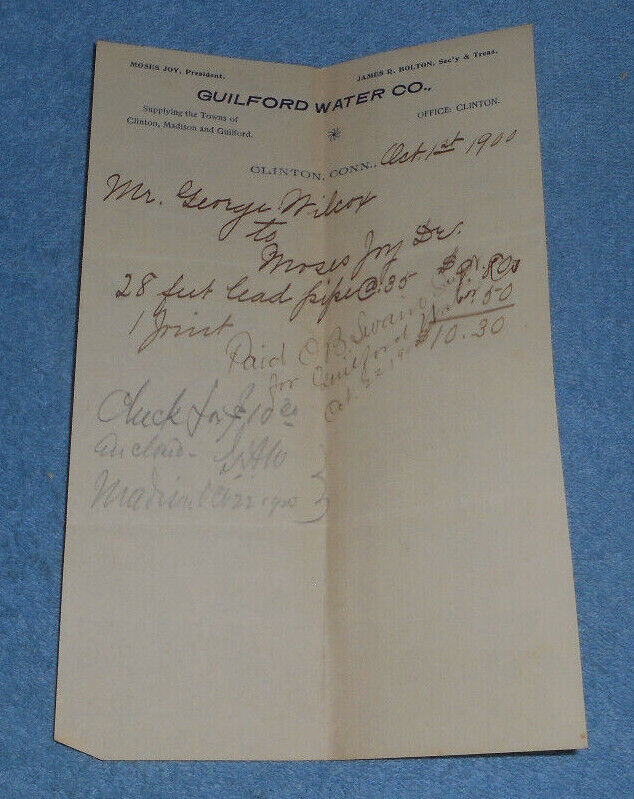 MOSES JOY, President.
JAMES R. BOLTON, Sec'y & Treas.
GUILFORD WATER CO.,
Supplying the Towns of
Clinton, Madison and Guilford.
OFFICE: CLINTON.
CLINTON, CONN., Oct. 1st 1900
Mr. George Wilcox
to
Moses Joy Dr.
28 feet lead pipe @ .35 $9.80
1 Joint .50
$10.30
Paid O B Swain
for Guilford
Oct. 22 1900
Check for $10
Enclosed
Madison Oct 22 1900